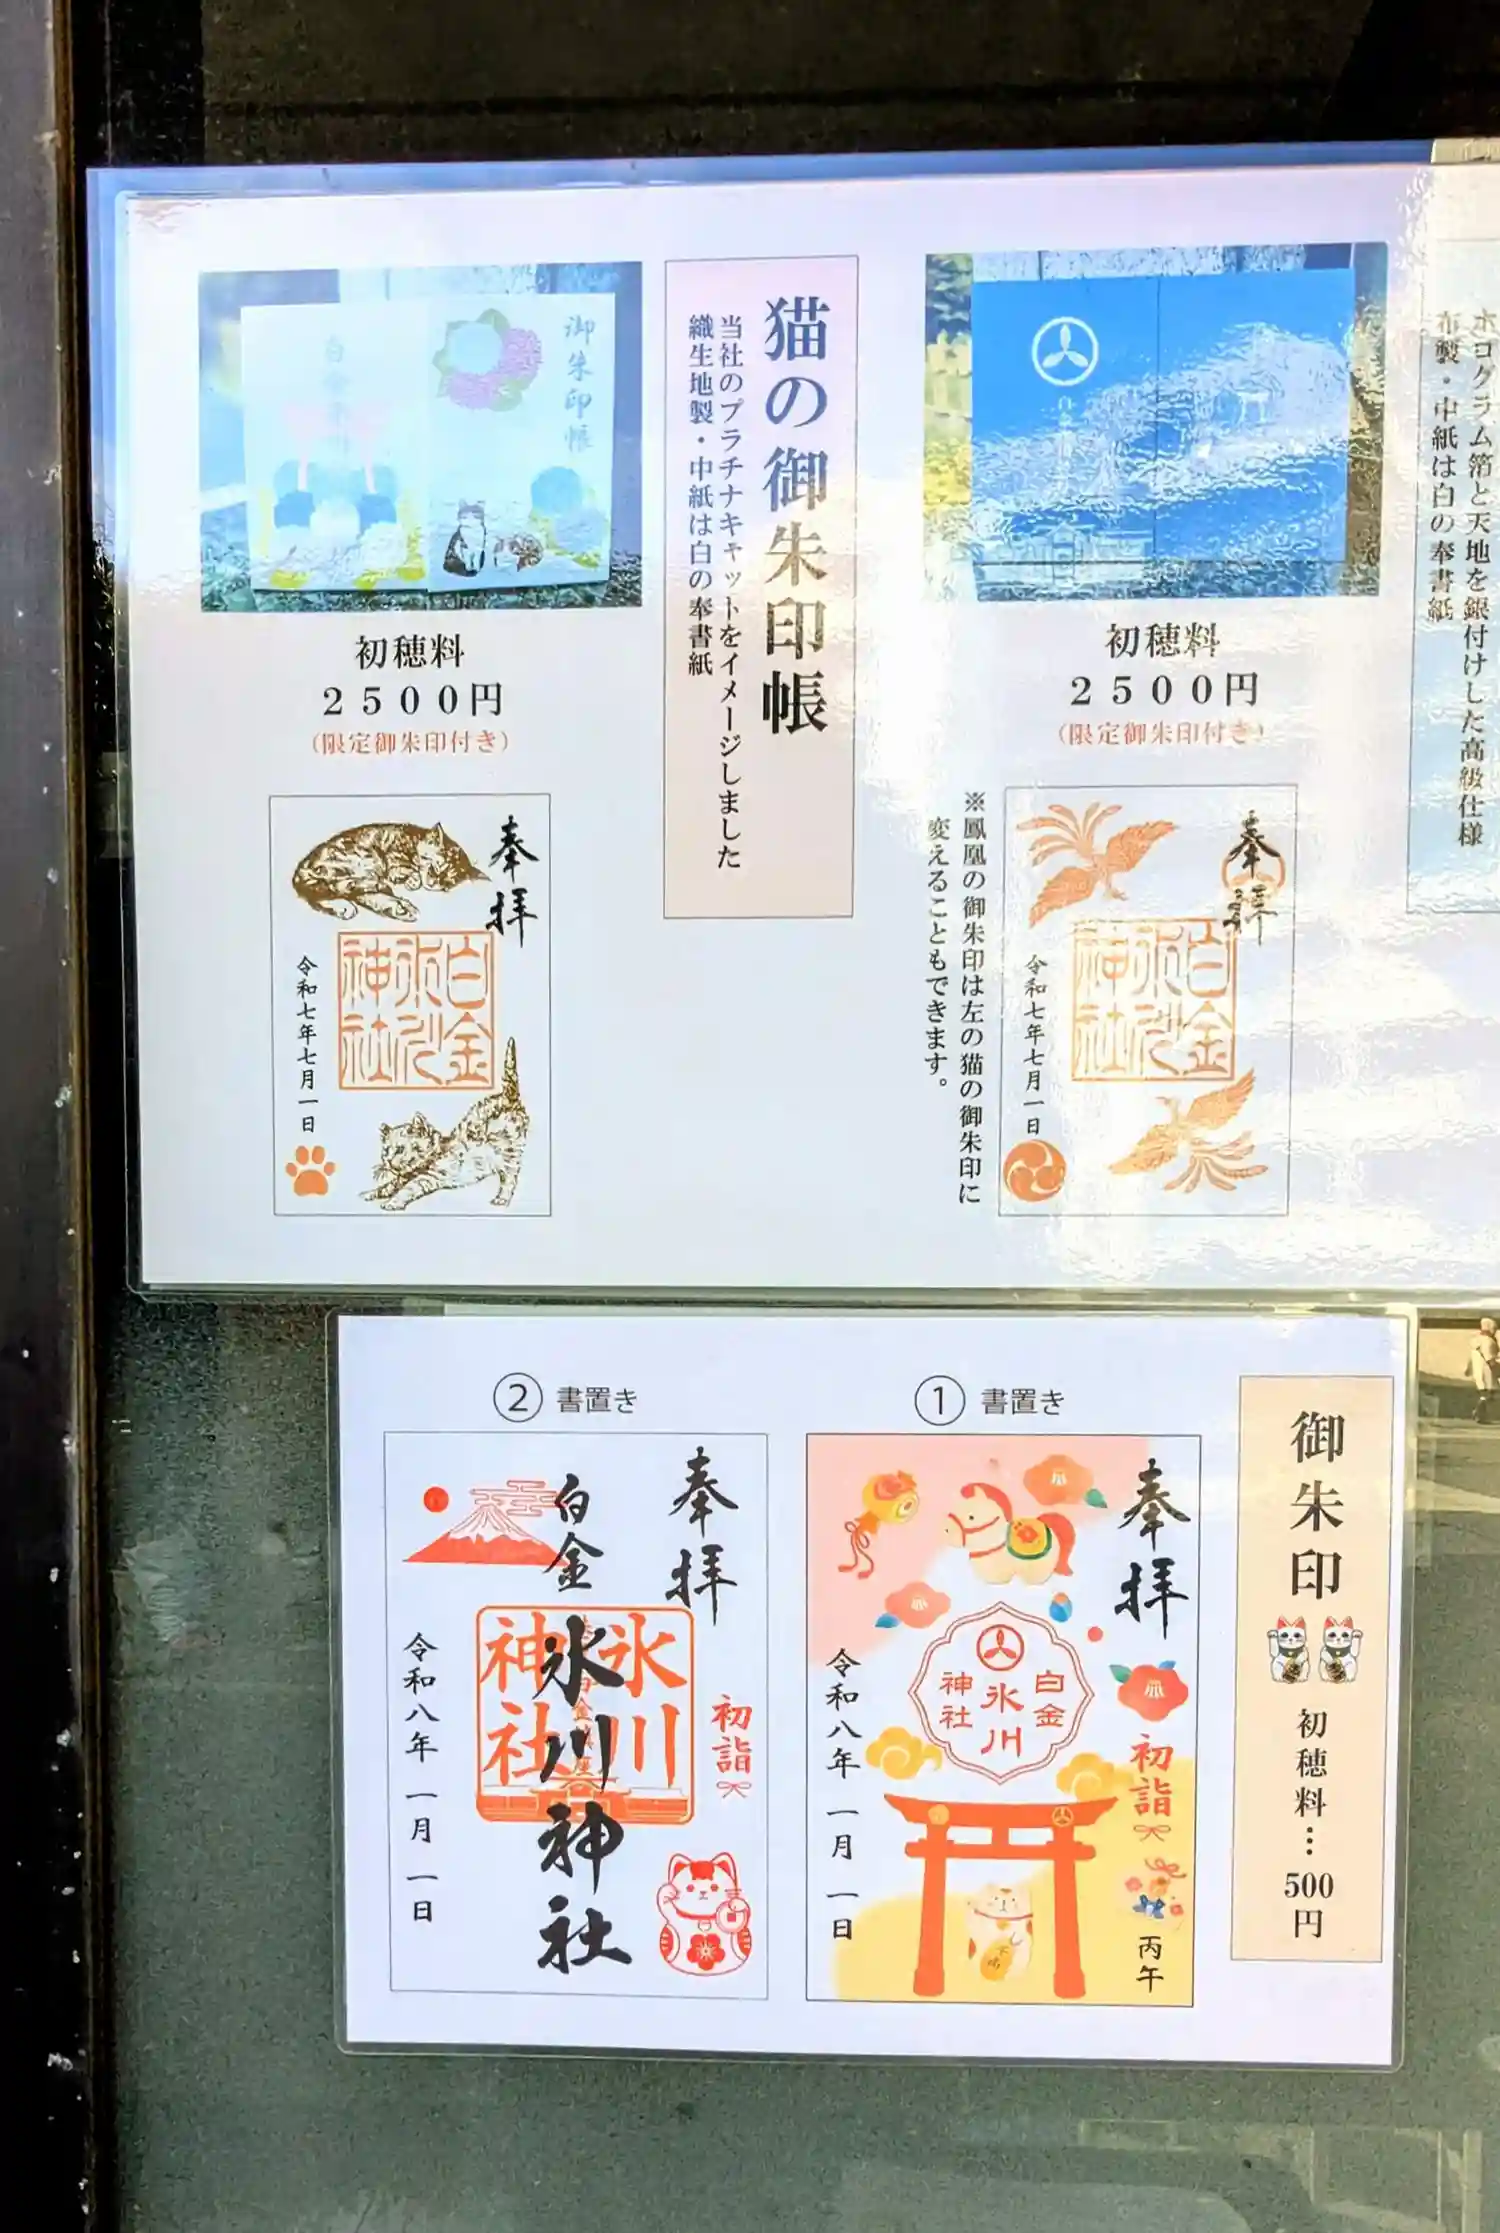 ホログラム箔と天地を銀付けした高級仕様
布製・中紙は白の奉書紙
初穂料
2500円
(限定御朱印付き)
※鳳凰の御朱印は左の猫の御朱印に
変えることもできます。
奉拝
白金
氷川
神社
令和七年七月一日
猫の御朱印帳
当社のプラチナキャットをイメージしました
織生地製・中紙は白の奉書紙
御朱印帳
初穂料
2500円
(限定御朱印付き)
奉拝
白金
氷川
神社
令和七年七月一日
御朱印
初穂料…500円
① 書置き
奉拝
初詣
丙午
白金
氷川
神社
令和八年 一月 一日
② 書置き
奉拝
初詣
白金 氷川神社
氷川
神社
令和八年 一月 一日